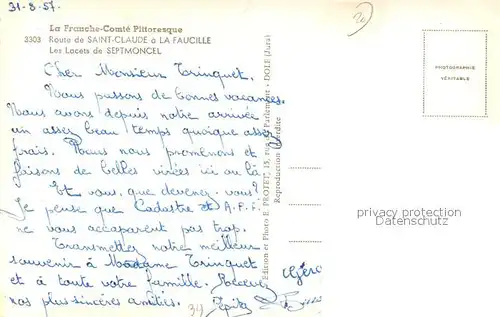 31-8-57.
La Franche-Comté Pittoresque
3303 Route de SAINT-CLAUDE à LA FAUCILLE
Les Lacets de SEPTMONCEL
Cher Monsieur Trinquet,
Nous passons de bonnes vacances.
Nous avons depuis notre arrivée
un assez beau temps quoique assez
frais. Nous nous promenons et
faisons de belles virées ici ou là.
Et vous, que devenez-vous?
Je pense que Cadastre et A.F.F.
ne vous accaparent pas trop.
Transmettez notre meilleur
souvenir à Madame Trinquet
et à toute votre famille. Recevez
nos plus sincères amitiés.
34
Edition et Photo E. PROTET, 15, rue du Parlement - DOLE (Jura)
Reproduction interdite
20
PHOTOGRAPHIE
VÉRITABLE
privacy protection
Datenschutz